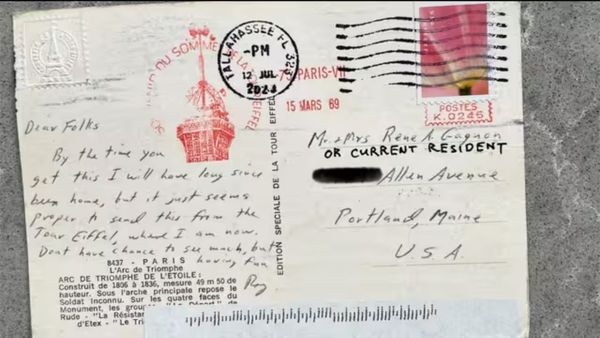 TALLAHASSEE FL 323
-PM
12 JUL
SOMMET
PARIS-VII
15 MARS 69
POSTES
K.0245
Dear Folks
By the time you
get this I will have long since
been home, but it just seems
proper to send this from the
Tour Eiffel, where I am now.
Dont have chance to see much, but
having fun
Roy
EDITION SPECIALE DE LA TOUR EIFFEL
Mr. & Mrs Rene A. Gagnon
OR CURRENT RESIDENT
Allen Avenue
Portland, Maine
U.S.A.
8437 - PARIS
L'Arc de Triomphe
ARC DE TRIOMPHE DE L'ÉTOILE:
Construit de 1806 à 1836, mesure 49 m 50 de
hauteur. Sous l'arche principale repose le
Soldat Inconnu. Sur les quatre faces du
Monument, les "Le Départ" de
Rude - "La Résistance
d'Etex - "Le